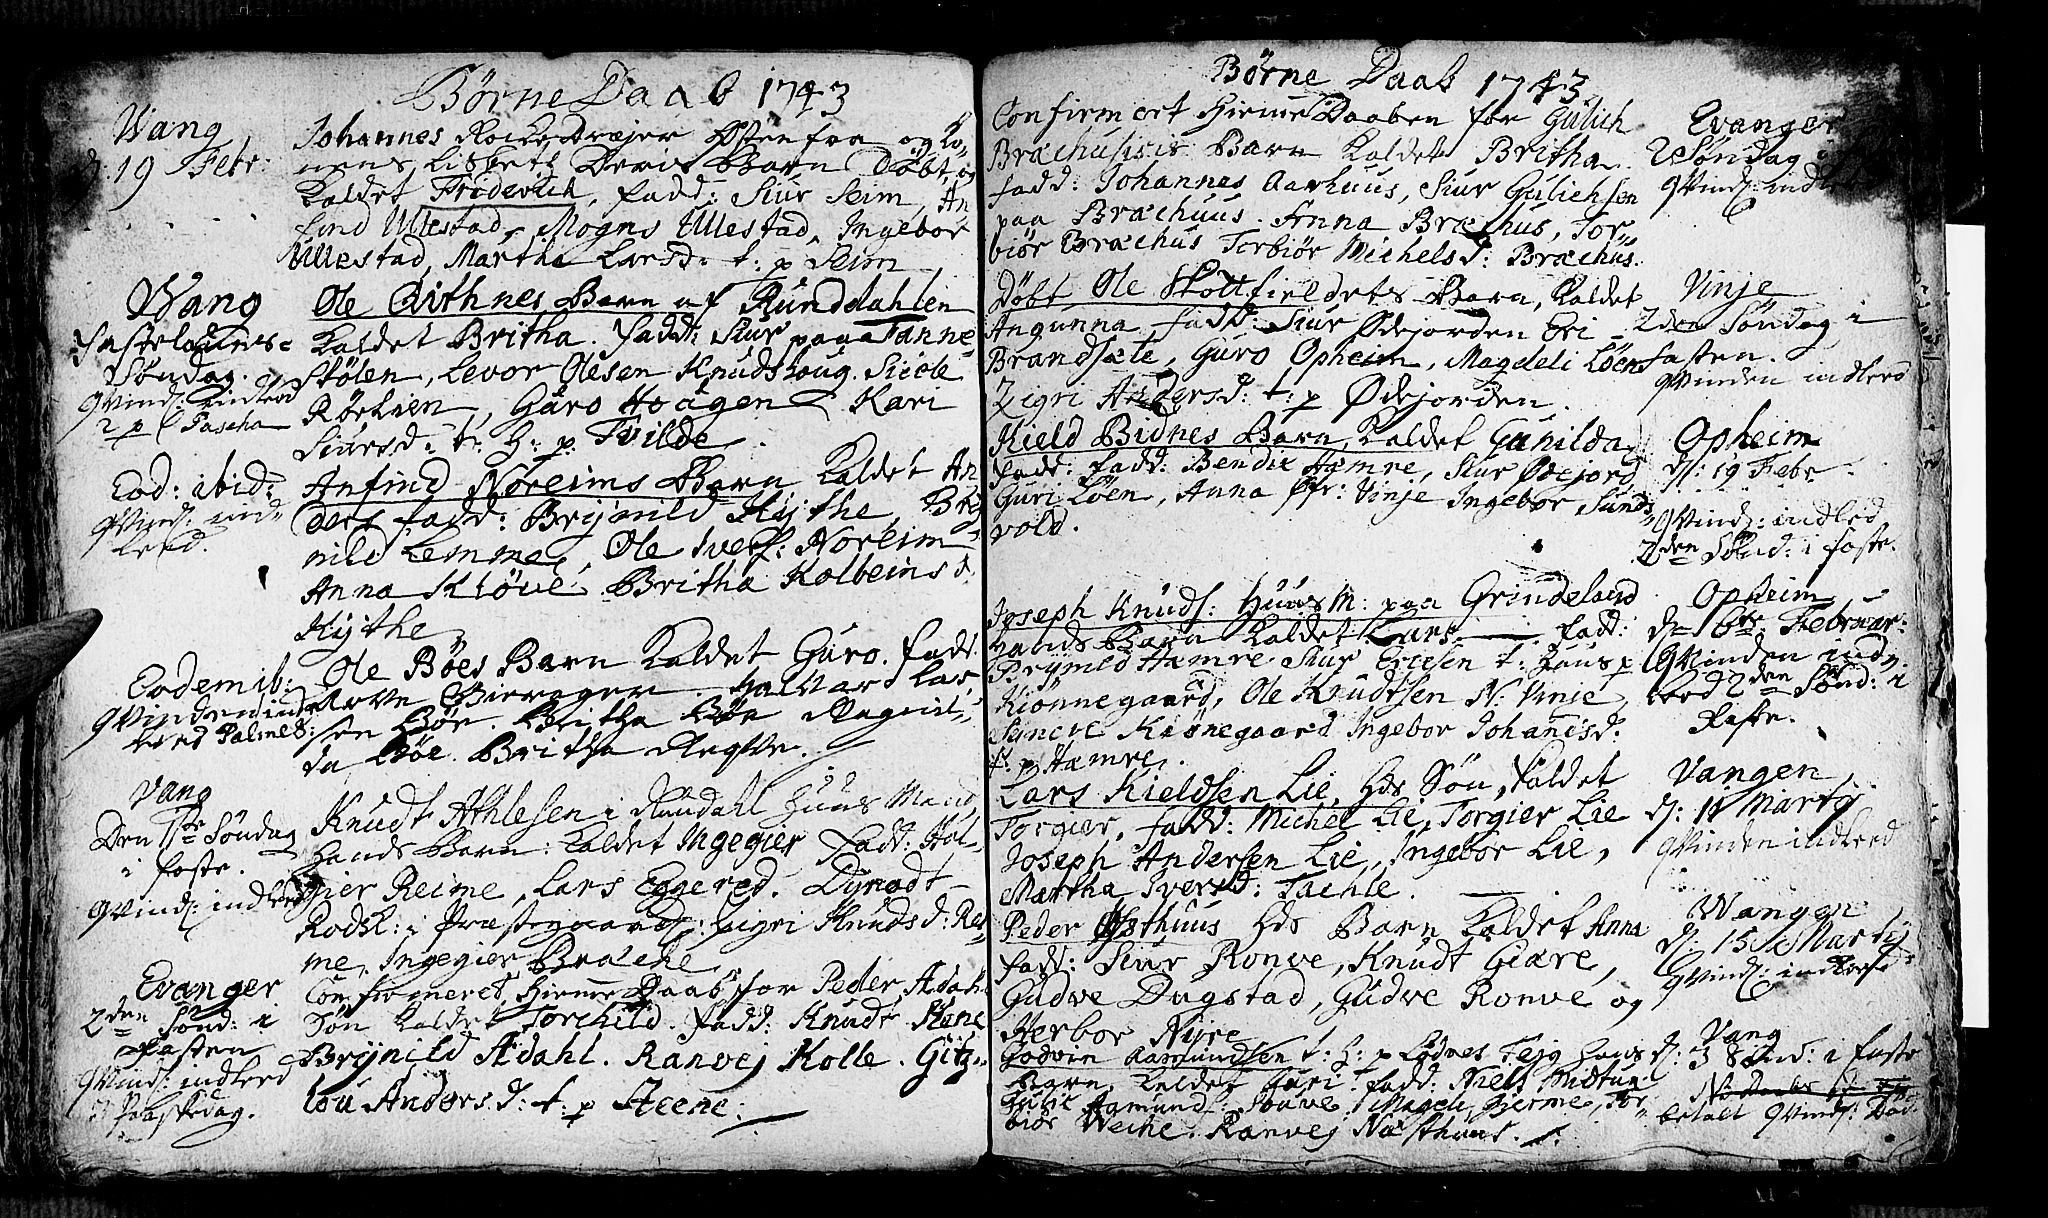 Børne Daab 1743
Wang
d: 19 Febr:
Johannes Rockedrejer Østenfra og Ko-
nens Lisbets Deris Barn Døbt, og
kaldet Friderich, fadd: Siur Seim, An
find Ullestad, Mogns Ullestad, Ingebor
Ullestad, Martha Larsd: t: p Seim
Wang
Fastelauns-
Søndag.
Qvind: indleed
2 p Pascha
Ole Qvithnes Barn af Runddahlen
kaldet Britha. fadd: Siur paa Fanne-
Stølen, Levor Olesen Knudshoug. Siole
Rørlien, Guro Hougen Kari
Siursd: t: h: p: Tvilde
Eod: ibid:
Qvind: ind-
leed.
Anfind Noreims Barn kaldet An
ders fadd: Brynild Kythe, Bry-
nild Lemme, Ole Ivers: Noreim
Anna Kløve, Britha Kolbeins d.
Kythe
Eodem ib:
Qvinden ind
leed Palmes:
Ole Bøes Barn kaldet Guro. fadd:
Arve Gierager. Halvar Lar
sen Bøe. Britha Bøe Ragnil-
da Bøe. Britha Reqve.
Vang
Den 1ste Søndag
i faste.
Qvind: indleed
Knudt Athlesen i Rundahl Huus Mand
hands Barn: kaldet Ingegier fadd: Hol-
gier Reime, Lars Eggered. Dynodt
Rodsk: i Præstegaard: Sigri Knudsd: Rei-
me, Ingegier Bræche
Evanger
2den Sønd: i
fasten
Qvind: indleed
Paaskedag.
Confirmeret Hiemme Daab for Peder Ædahl
Søn kaldet Torchild. fadd: Knudt Stene
Brynild Ædahl. Ranvej Kolle. Gitz-
lou Andersd: t: p Steene:
Børne Daab 1743
Confirmert HiemmeDaaben for Gulich
Bræchusisis Barn kaldet Britha
fadd: Johannes Aarhuus, Siur Gulichsen
paa Bræchuus. Anna Bræchus, Tor
biør Bræchus Torbiør Michelsd: Bræchus.
Evanger
2 Søndag
Qvind: indleed
Døbt Ole Skottfieldets Barn, kaldet
Angunna fadd: Siur Ødejorden Eri
Brandsæte, Guro Opheim, Magdeli Løen
Zigri Andersd: t: p Ødejorden.
Vinje
2den Søndag i
fasten.
Qvinden indleed
Kield Bidnes Barn kaldet Gunilda
fadd: fadd: Bendix Hæmre, Siur Ødejord
Guri Løen, Anna Ør: Vinje Ingebor Sunds
vold.
Opheim
d: 19 Febr
Qvind: indleed
2den Sønd: i faste.
Joseph Knuds: HuusM: paa Grindeland
hands Barn kaldet Lars fadd:
Brynild Hæmre. Siur Ericsen t: Huus p
Kiønnegaard, Ole Knudtsen N. Vinie,
Syneve Kiønegaard Ingebor Johanisd.
t: p Hæmre.
Opheim
d 6te Februar:
Qvinden ind-
leed 2den Sønd: i
faste.
Lars Kieldsen Lie, Hds Søn, kaldet
Torgier, fadd: Michel Lie, Torgier Lie
Joseph Andersen Lie, Ingebor Lie,
Martha Iversd: Tachle.
Vangen
d: 11 Martij
Qvinden indleed
Peder Østhuus Hds Barn kaldet Anna
fadd: Siur Ronve, Knudt Giære,
Gudve Dugstad, Gudve Ronve og
Herbor Nyre
Wangen
d: 15 Martij
Qvind: indleed
Godvin Aamundsen t: h: p Lødves Tejg hans
Barn kaldet Guri fadd: Niels Midtun
Gulic Aamund: Støuve Magdeli Gierme, Tor
biør Weche. Ranvej Næsthuus.
Vang
d: 3 Sønd: i faste
betalt Qvind: Død